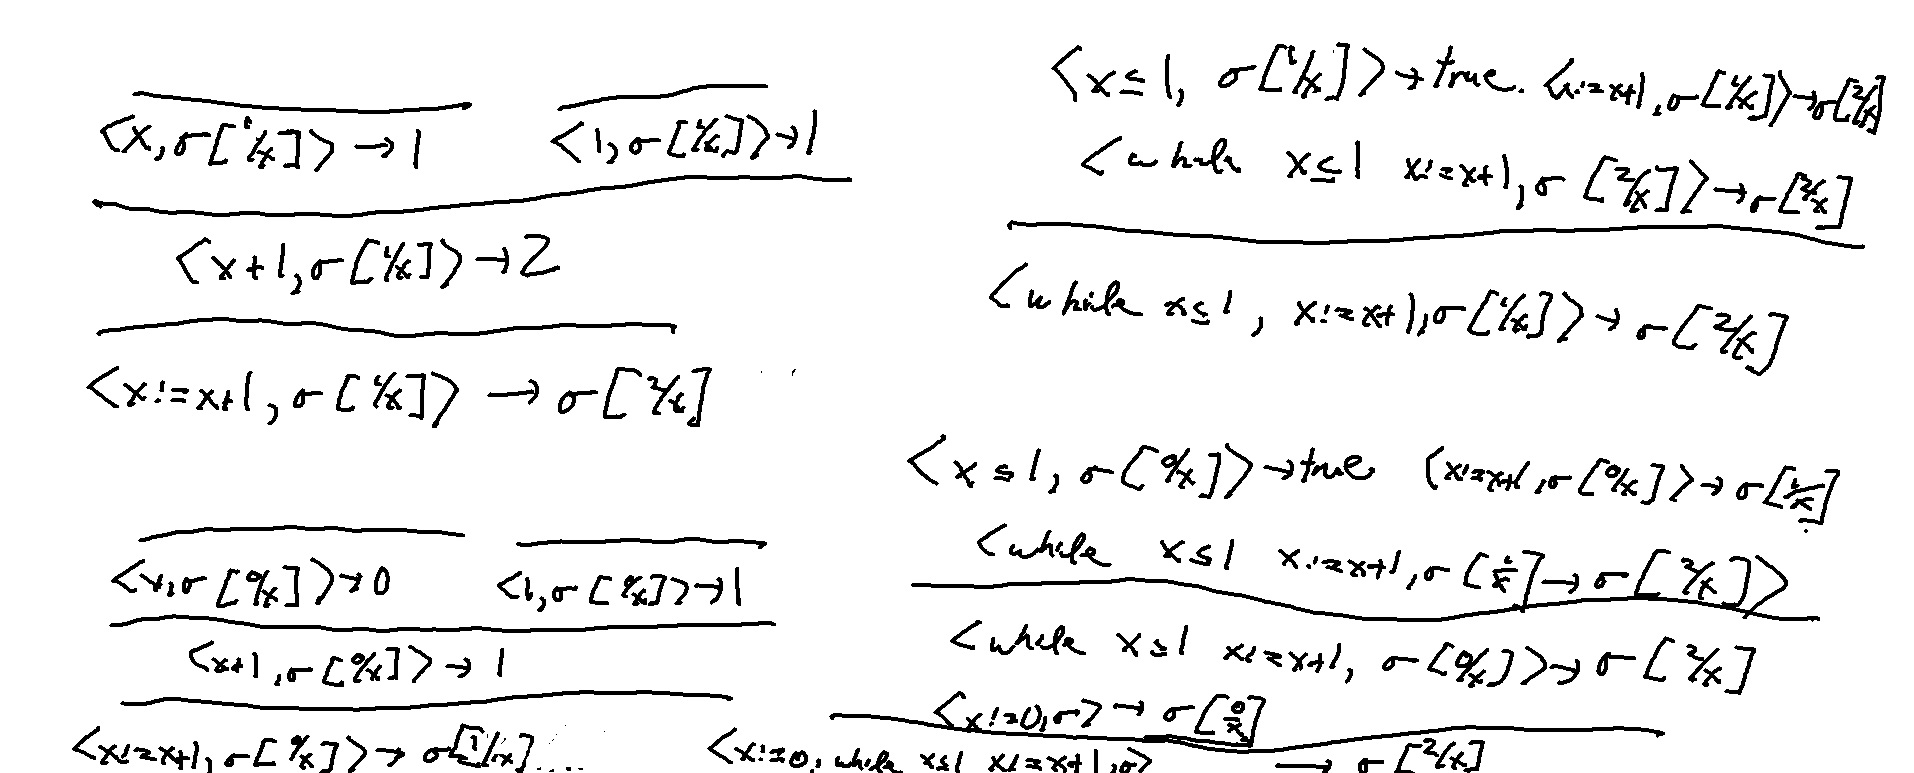 <x, σ[1/x]> → 1    <1, σ[1/x]> → 1
<x+1, σ[1/x]> → 2
<x:=x+1, σ[1/x]> → σ[2/x]
<x, σ[0/x]> → 0    <1, σ[0/x]> → 1
<x+1, σ[0/x]> → 1
<x:=x+1, σ[0/x]> → σ[1/x] ....
<x≤1, σ[1/x]> → true. <x:=x+1, σ[1/x]> → σ[2/x]
<while x≤1 x:=x+1, σ[2/x]> → σ[2/x]
<while x≤1, x:=x+1, σ[1/x]> → σ[2/x]
<x≤1, σ[0/x]> → true <x:=x+1, σ[0/x]> → σ[1/x]
<while x≤1 x:=x+1, σ[1/x] → σ[2/x]>
<while x≤1 x:=x+1, σ[0/x]> → σ[2/x]
<x:=0, σ> → σ[0/x]
<x:=0, while x≤1 x:=x+1, σ> → σ[2/x]